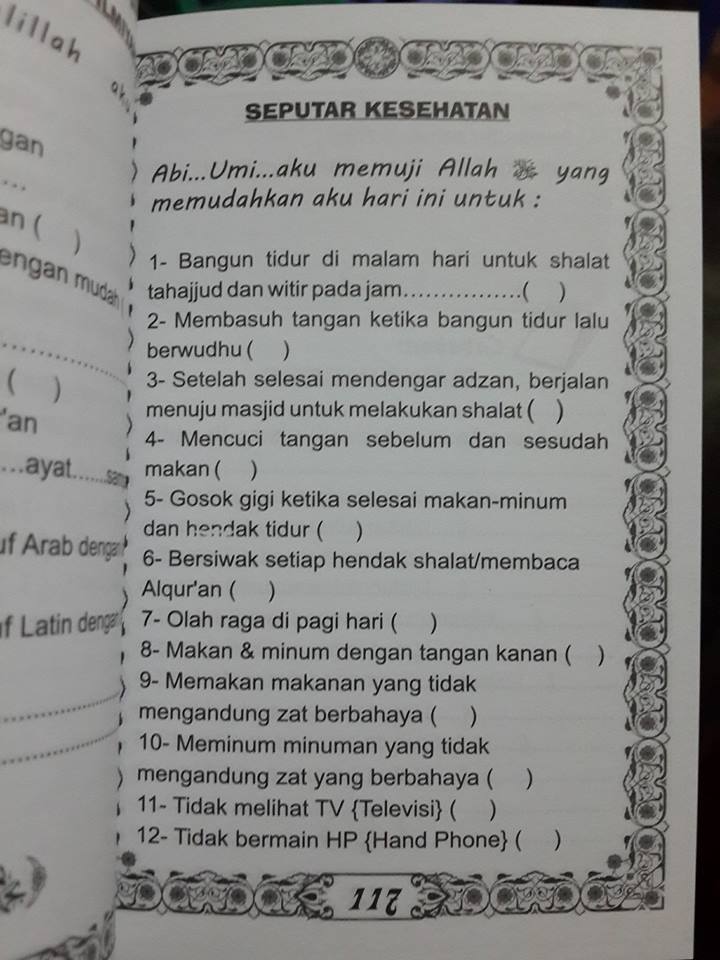 lillah
gan
...
an ( )
engan mudah
( )
'an
...ayat......
uf Arab dengan
f Latin dengan
SEPUTAR KESEHATAN
Abi...Umi...aku memuji Allah ﷻ yang
memudahkan aku hari ini untuk :
1- Bangun tidur di malam hari untuk shalat
tahajjud dan witir pada jam................( )
2- Membasuh tangan ketika bangun tidur lalu
berwudhu ( )
3- Setelah selesai mendengar adzan, berjalan
menuju masjid untuk melakukan shalat ( )
4- Mencuci tangan sebelum dan sesudah
makan ( )
5- Gosok gigi ketika selesai makan-minum
dan hendak tidur ( )
6- Bersiwak setiap hendak shalat/membaca
Alqur'an ( )
7- Olah raga di pagi hari ( )
8- Makan & minum dengan tangan kanan ( )
9- Memakan makanan yang tidak
mengandung zat berbahaya ( )
10- Meminum minuman yang tidak
mengandung zat yang berbahaya ( )
11- Tidak melihat TV {Televisi} ( )
12- Tidak bermain HP {Hand Phone} ( )
117